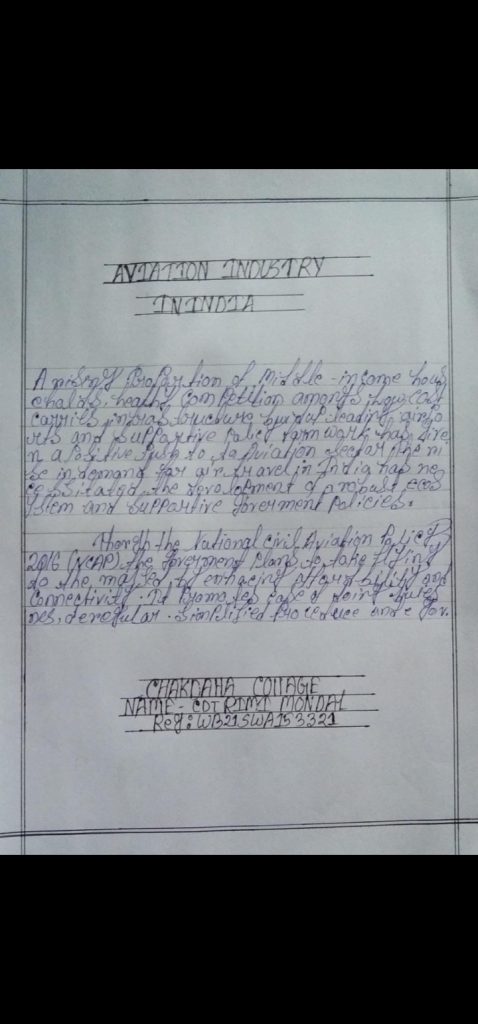 AVIATION INDUSTRY
IN INDIA
A rising Proportion of Middle-income hous
ehalds, healthy Competition amongs Low Cost
carries, infrastructure buildup leading airpo
rts and supportive Policy farmwork has give
n a Positive push to Aviation sector. The ri
se in demand for air travel in India has ne
cessitated the development of a robust eco
stem and supportive Goverment Policies.
Thorgh the National Civil Aviation Policy
2016 (NCAP) the Goverment Plans to take flying
to the masses by enhacing affordability and
Connectivity. It Promotes ease of doing busin
ess, deregular. Simplified Procedure and e gov.
CHAKDAHA COLLAGE
NAME - CDT RIMI MONDAL
Reg: WB21SWA153321